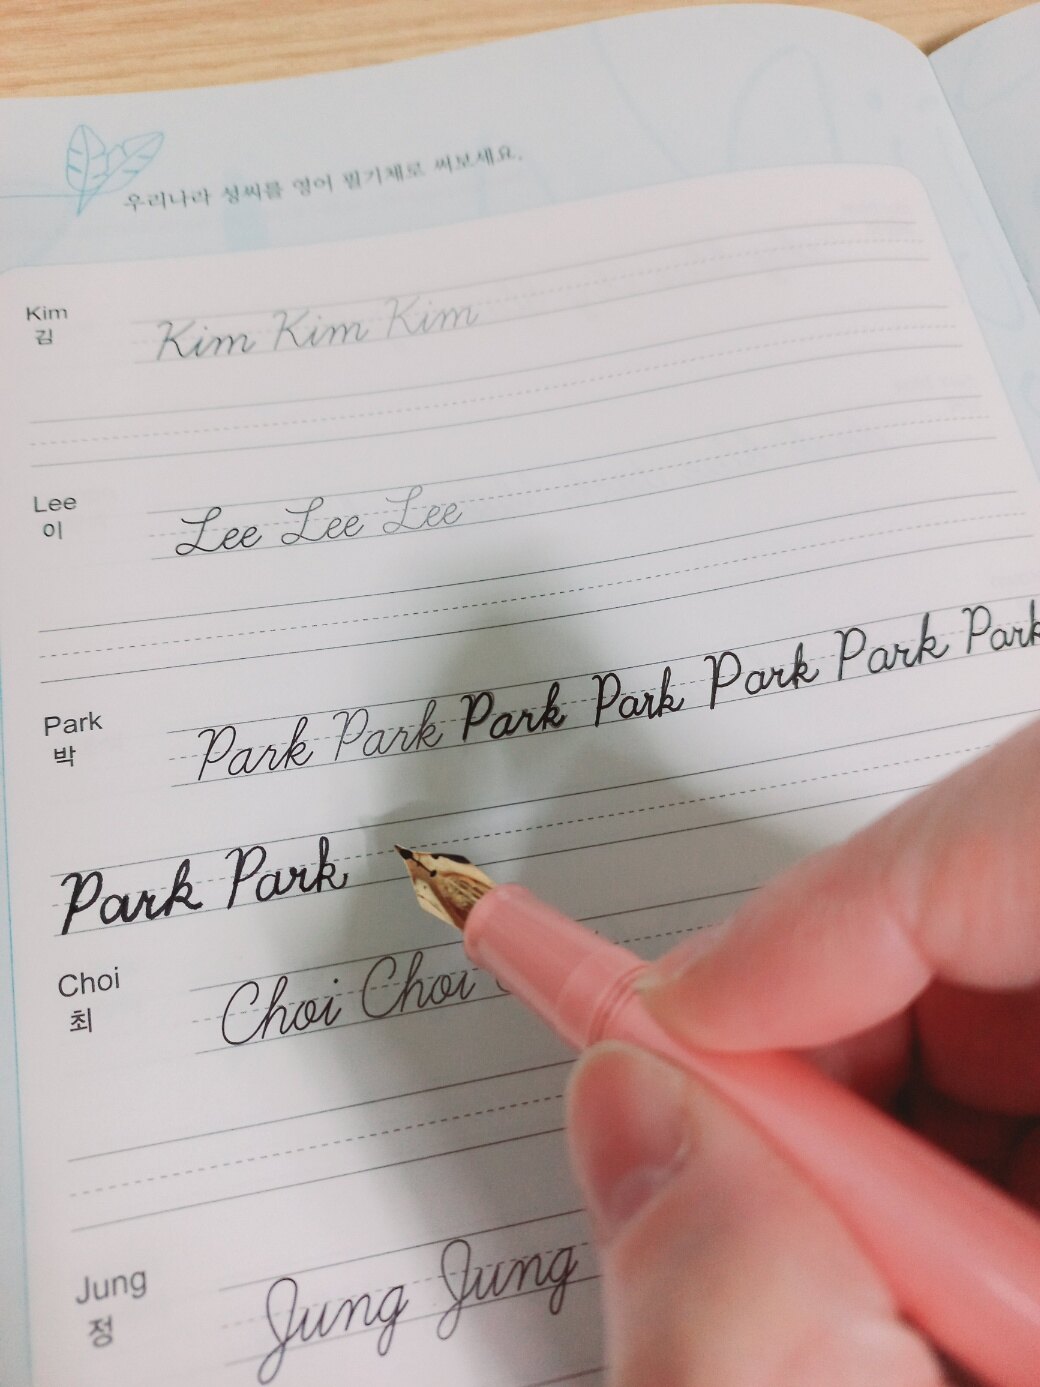 우리나라 성씨를 영어 필기체로 써보세요.
Kim
김
Kim Kim Kim
Lee
이
Lee Lee Lee
Park
박
Park Park Park Park Park Park Park
Park Park
Choi
최
Choi Choi
Jung
정
Jung Jung